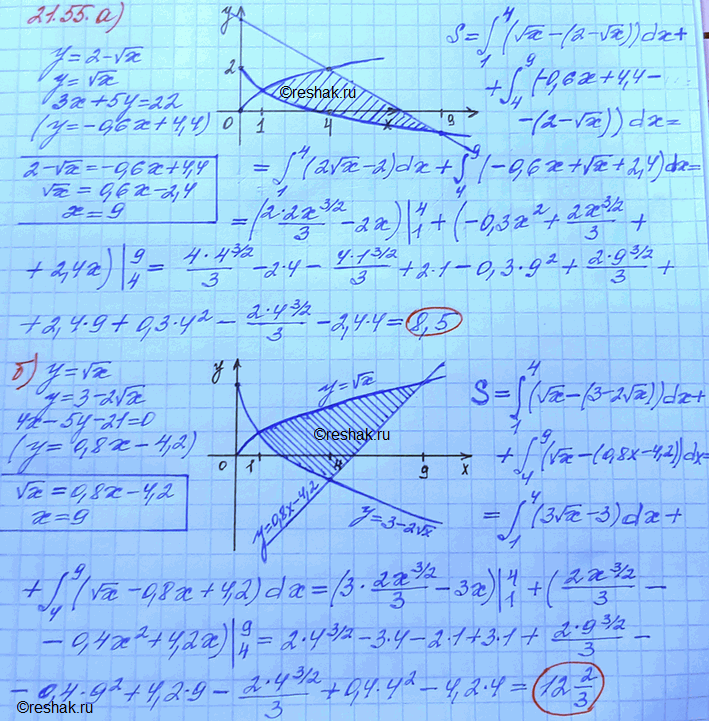 21.55.а)
y=2-√x
y=√x
3x+5y=22
(y=-0,6x+4,4)
2-√x=-0,6x+4,4
√x=0,6x-2,4
x=9
y
2
0 1 4 x 9
©reshak.ru
S=∫₁⁴(√x-(2-√x))dx+
+∫₄⁹(-0,6x+4,4-
-(2-√x))dx=
=∫₁⁴(2√x-2)dx+∫₄⁹(-0,6x+√x+2,4)dx=
=(2·2x^(3/2)/3-2x)|₁⁴+(-0,3x²+2x^(3/2)/3+
+2,4x)|₄⁹=4·4^(3/2)/3-2·4-4·1^(3/2)/3+2·1-0,3·9²+2·9^(3/2)/3+
+2,4·9+0,3·4²-2·4^(3/2)/3-2,4·4=8,5
б) y=√x
y=3-2√x
4x-5y-21=0
(y=0,8x-4,2)
√x=0,8x-4,2
x=9
y
y=√x
©reshak.ru
0 1 4 9 x
y=0,8x-4,2
y=3-2√x
S=∫₁⁴(√x-(3-2√x))dx+
+∫₄⁹(√x-(0,8x-4,2))dx=
=∫₁⁴(3√x-3)dx+
+∫₄⁹(√x-0,8x+4,2)dx=(3·2x^(3/2)/3-3x)|₁⁴+(2x^(3/2)/3-
-0,4x²+4,2x)|₄⁹=2·4^(3/2)-3·4-2·1+3·1+2·9^(3/2)/3-
-0,4·9²+4,2·9-2·4^(3/2)/3+0,4·4²-4,2·4=12 2/3
©reshak.ru